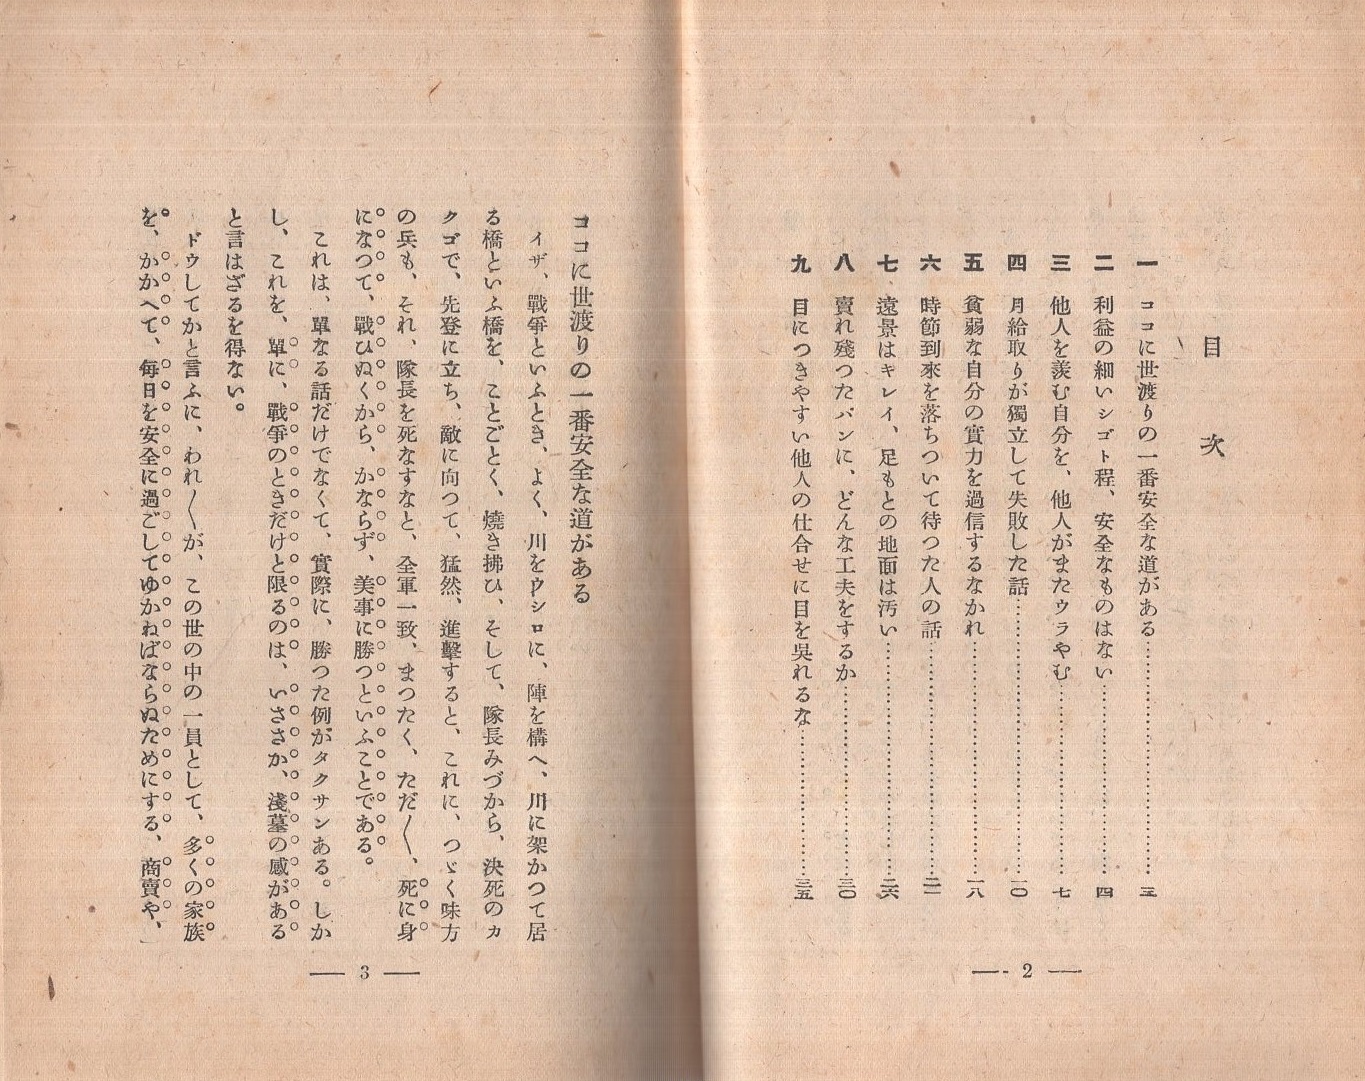 目次
一 ココに世渡りの一番安全な道がある……………三
二 利益の細いシゴト程、安全なものはない……………四
三 他人を羨む自分を、他人がまたウラやむ……………七
四 月給取りが獨立して失敗した話……………一〇
五 貧弱な自分の實力を過信するなかれ……………一八
六 時節到來を落ちついて待つた人の話……………二一
七 遠景はキレイ、足もとの地面は汚い……………二六
八 賣れ殘つたパンに、どんな工夫をするか……………三〇
九 目につきやすい他人の仕合せに目を呉れるな……………三五
— 2 —
ココに世渡りの一番安全な道がある
イザ、戰爭といふとき、よく、川をウシロに、陣を構へ、川に架かつて居
る橋といふ橋を、ことごとく、燒き拂ひ、そして、隊長みづから、決死のカ
クゴで、先登に立ち、敵に向つて、猛然、進擊すると、これに、つゞく味方
の兵も、それ、隊長を死なすなと、全軍一致、まつたく、ただ〱、死に身
になつて、戰ひぬくから、かならず、美事に勝つといふことである。
これは、單なる話だけでなくて、實際に、勝つた例がタクサンある。しか
し、これを、單に、戰爭のときだけと限るのは、いささか、淺墓の感がある
と言はざるを得ない。
ドウしてかと言ふに、われ〱が、この世の中の一員として、多くの家族
を、かかへて、毎日を安全に過ごしてゆかねばならぬためにする、商賣や、
— 3 —